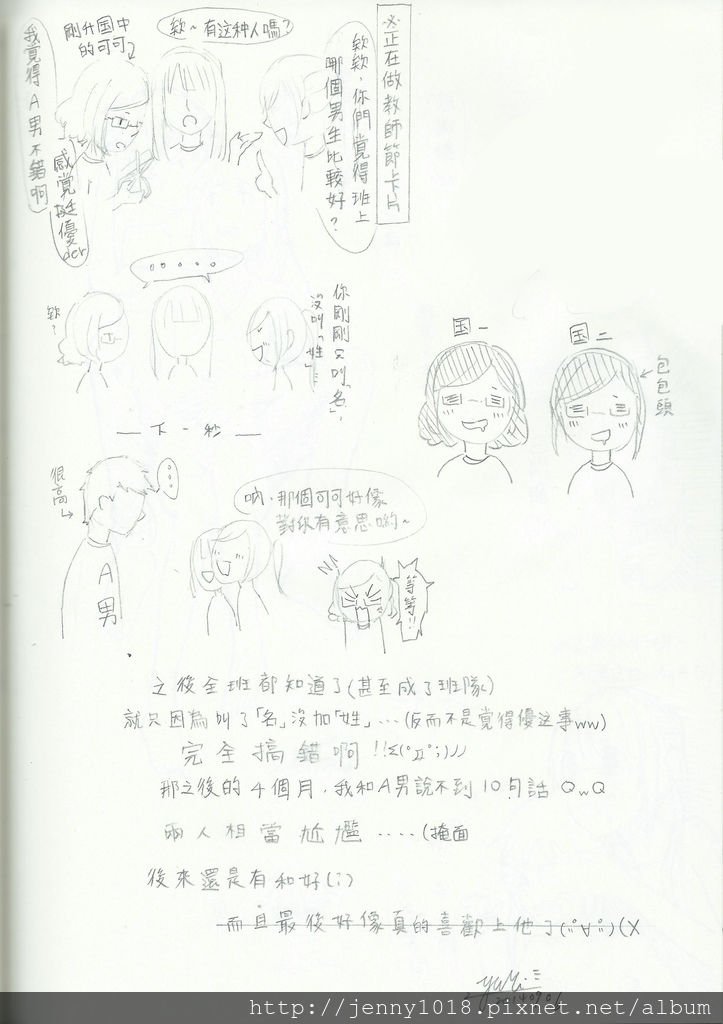 ※正在做教師節卡片
欸欸，你們覺得班上
哪個男生比較好？
欸~有这种人嗎？
剛升国中
的可可
我覺得A男不錯啊
感覚挺優der
。。。。。
欸？
你剛剛只叫「名」，
沒叫「姓」…
国一
国二
包包頭
— 下一秒 —
很高
A男
吶，那個可可好像
對你有意思喲~
等等!!
之後全班都知道了(甚至成了班隊)
就只因為叫了「名」沒加「姓」…(反而不是覺得優这事ww)
完全搞錯啊!!Σ(ﾟДﾟ;)ﾉﾉ
那之後的4個月，我和A男說不到10句話 QwQ
兩人相當尷尬....(掩面
後來還是有和好(?)
而且最後好像真的喜歡上他了(;;A;;)(X
20140901
http://jenny1018.pixnet.net/album